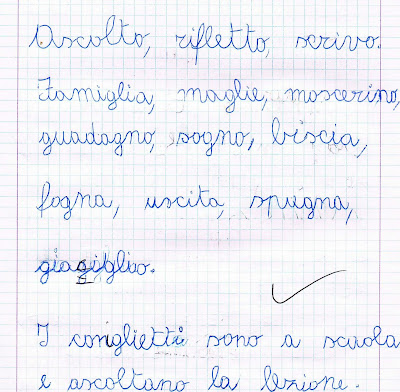 Ascolto, rifletto, scrivo.
Famiglia, maglie, moscerino,
guadagno, sogno, biscia,
fogna, uscita, spugna,
I coniglietti sono a scuola
e ascoltano la lezione.